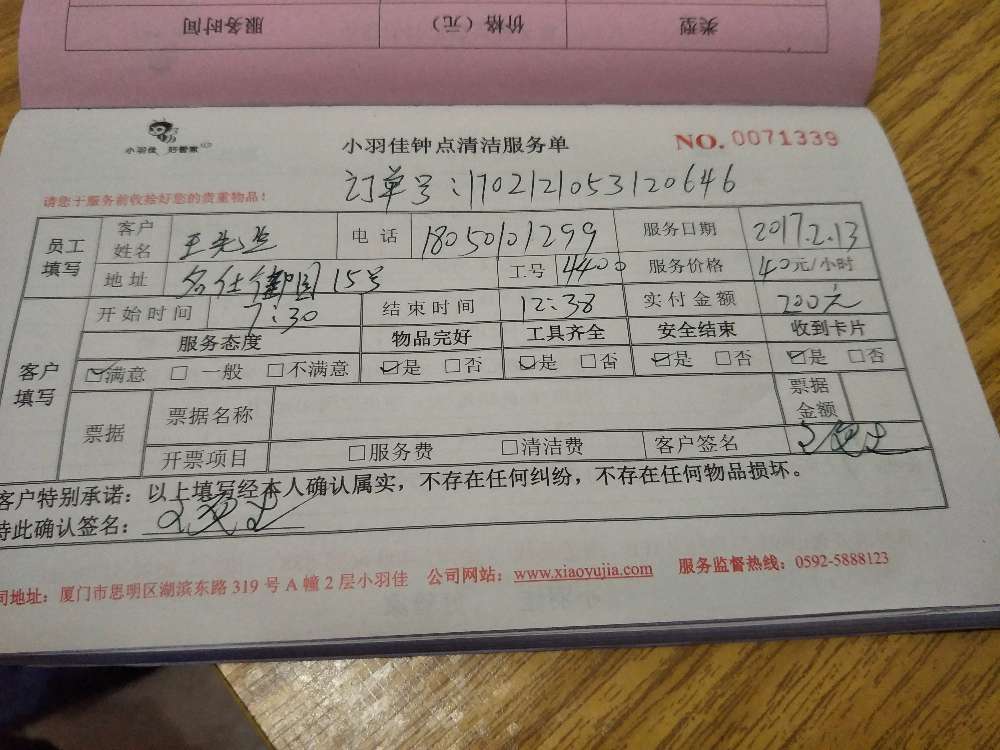 服务时间 价格（元） 类型
小羽佳 好管家
小羽佳钟点清洁服务单 NO. 0071339
订单号：1702121053120646
请您于服务前收拾好您的贵重物品！
员工填写 客户姓名 王先生 电话 18050101299 服务日期 2017.2.13
地址 名仕御园15号 工号 4400 服务价格 40元/小时
客户填写 开始时间 7:30 结束时间 12:38 实付金额 200元
服务态度 物品完好 工具齐全 安全结束 收到卡片
☑满意 □一般 □不满意 ☑是 □否 ☑是 □否 ☑是 □否 ☑是 □否
票据 票据名称 票据金额
开票项目 □服务费 □清洁费 客户签名
客户特别承诺：以上填写经本人确认属实，不存在任何纠纷，不存在任何物品损坏。
特此确认签名：
司地址：厦门市思明区湖滨东路 319 号 A 幢 2 层小羽佳 公司网站：www.xiaoyujia.com 服务监督热线：0592-5888123